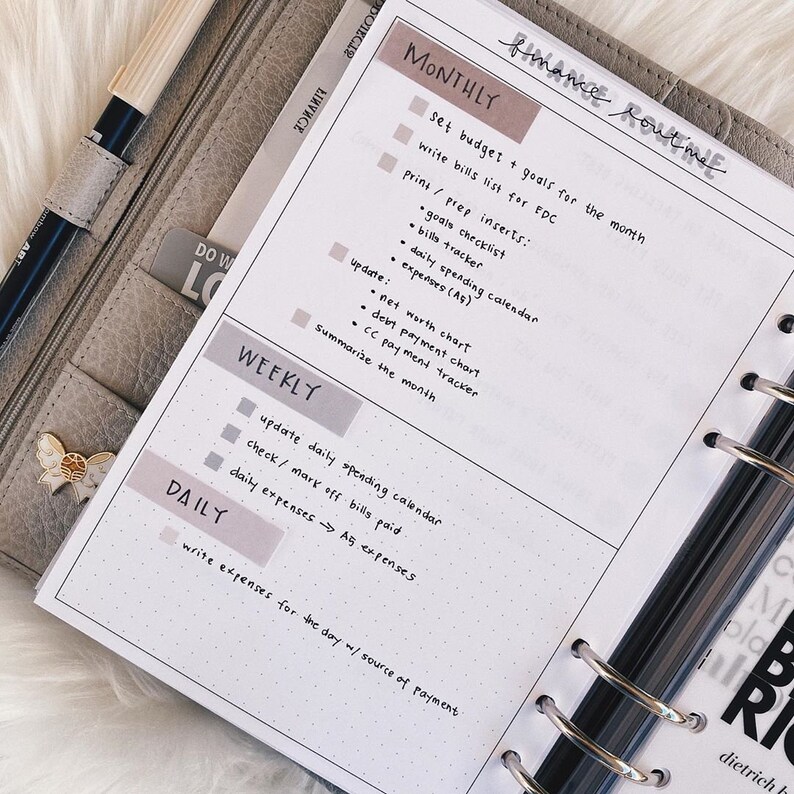 FINANCE ROUTINE
finance routine
MONTHLY
set budget + goals for the month
write bills list for EDC
print / prep inserts:
• goals checklist
• bills tracker
• daily spending calendar
• expenses (A5)
update:
• net worth chart
• debt payment chart
• CC payment tracker
summarize the month
WEEKLY
update daily spending calendar
check / mark off bills paid
daily expenses → A5 expenses
DAILY
write expenses for the day w/ source of payment
PROJECTS
FINANCE
DO W
LO
ART
B
RI
dietrich b